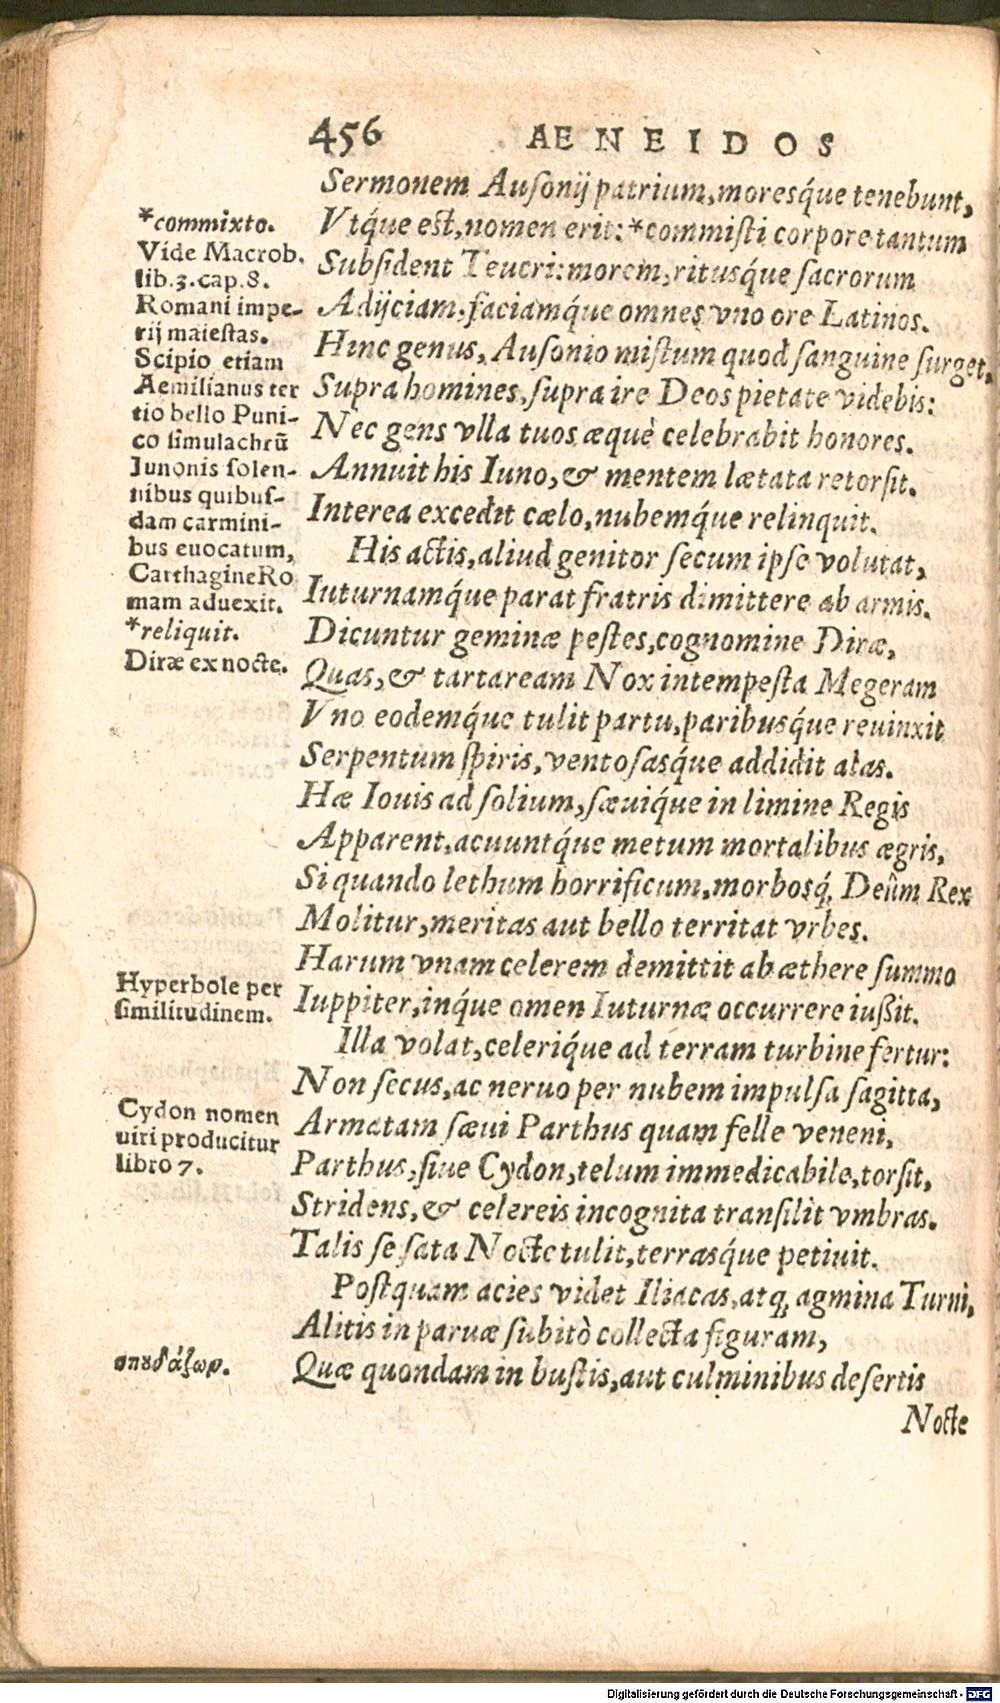 456 AENEIDOS
Sermonem Ausonij patrium, moresq́ue tenebunt,
Vtq́ue est, nomen erit: *commisti corpore tantum
Subsident Teucri: morem, ritusq́ue sacrorum
Adijciam, faciamq́ue omnes vno ore Latinos.
Hinc genus, Ausonio mistum quod sanguine surget,
Supra homines, supra ire Deos pietate videbis:
Nec gens vlla tuos æquè celebrabit honores.
Annuit his Iuno, & mentem lætata retorsit.
Interea excedit cælo, nubemq́ue relinquit.
His actis, aliud genitor secum ipse volutat,
Iuturnamq́ue parat fratris dimittere ab armis.
Dicuntur geminæ pestes, cognomine Diræ,
Quas, & tartaream Nox intempesta Megeram
Vno eodemq́ue tulit partu, paribusq́ue reuinxit
Serpentum spiris, ventosasq́ue addidit alas.
Hæ Iouis ad solium, sæuiq́ue in limine Regis
Apparent, acuuntq́ue metum mortalibus ægris,
Si quando lethum horrificum, morbosq́; Deûm Rex
Molitur, meritas aut bello territat vrbes.
Harum vnam celerem demittit ab æthere summo
Iuppiter, inq́ue omen Iuturnæ occurrere iußit.
Illa volat, celeriq́ue ad terram turbine fertur:
Non secus, ac neruo per nubem impulsa sagitta,
Armatam sæui Parthus quam felle veneni,
Parthus, siue Cydon, telum immedicabile, torsit,
Stridens, & celereis incognita transilit vmbras.
Talis se sata Nocte tulit, terrasq́ue petiuit.
Postquam acies videt Iliacas, atq; agmina Turni,
Alitis in paruæ subitò collecta figuram,
Quæ quondam in bustis, aut culminibus desertis
Nocte
*commixto.
Vide Macrob.
lib.3.cap.8.
Romani impe-
rij maiestas.
Scipio etiam
Aemilianus ter
tio bello Puni-
co simulachrũ
Junonis solen-
nibus quibus-
dam carmini-
bus euocatum,
Carthagine Ro
mam aduexit.
*reliquit.
Diræ ex nocte.
Hyperbole per
similitudinem.
Cydon nomen
uiri producitur
libro 7.
σπυδάζωρ.
Digitalisierung gefördert durch die Deutsche Forschungsgemeinschaft - DFG